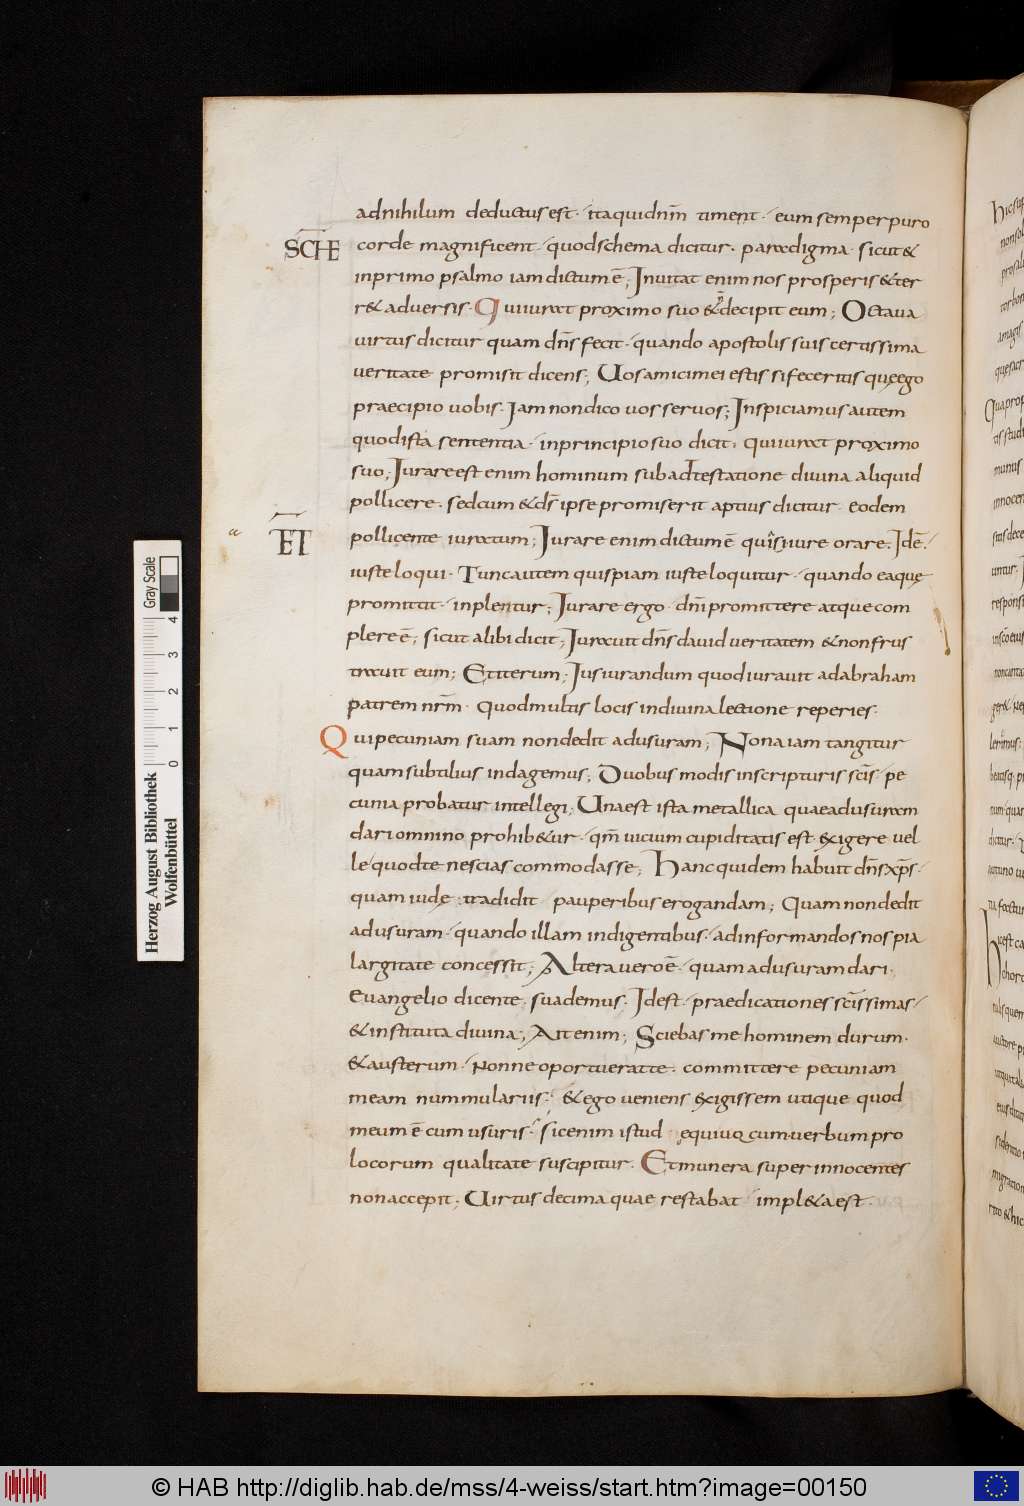 adnihilum deductus est · itaquidnm̄ timent · eum semper puro
SCHE
corde magnificent · quodschema dicitur · paradigma · sicut &
inprimo psalmo iam dictum ē ; Inuitat enim nos prosperis & ter
r& aduersis · Qui iurat proximo suo & decipit eum ; Octaua
uirtus dicitur quam dn̄s fecit · quando apostolis suis certissima
ueritate promisit dicens ; Uos amici mei estis si feceritis quę ego
praecipio uobis · Iam non dico uos seruos ; Inspiciamus autem
quod ista sententia · inprincipio suo dicit · qui iurat proximo
suo ; Iurare est enim hominum sub adtestatione diuina aliquid
pollicere · sed cum & ds̄ ipse promiserit aptius dicitur · eodem
ET
pollicente iuratum ; Iurare enim dictum ē quasi iure orare · Id ē ·
iuste loqui · Tunc autem quispiam iuste loquitur · quando ea quę
promittit · inplentur ; Iurare ergo · dn̄i promittere atque com
plere ē ; sicut alibi dicit ; Iurauit dn̄s dauid ueritatem & non frus
trauit eum ; Et iterum ; Iusiurandum quod iurauit ad abraham
patrem nr̄m · quod multis locis in diuina lectione reperies ·
Qui pecuniam suam non dedit ad usuram ; Nona iam tangitur
quam subtilius indagemus ; Duobus modis inscripturis sc̄is · pe
cunia probatur intellegi ; Una est ista metallica quae ad usuram
dari omnino prohib&ur · qm̄ uicium cupiditatis est exigere uel
le quod te nescias commodasse ; Hanc quidem habuit dn̄s xp̄s ·
quam iudę tradidit · pauperibus erogandam ; Quam non dedit
ad usuram · quando illam indigentibus · ad informandos nos pia
largitate concessit ; Altera uero ē · quam ad usuram dari ·
euangelio dicente · suademus · Id est · praedicationes sc̄issimas ·
& instituta diuina ; Ait enim ; Sciebas me hominem durum ·
& austerum · Nonne oportuerat te · committere pecuniam
meam nummulariis · & ego ueniens exigissem utique quod
meum ē cum usuris · sic enim istud equiuoqcum uerbum pro
locorum qualitate suscipitur · Et munera super innocentes
non accepit ; Uirtus decima quae restabat · impl&a est ·
Gray Scale
0 1 2 3 4
Herzog August Bibliothek
Wolfenbüttel
© HAB http://diglib.hab.de/mss/4-weiss/start.htm?image=00150